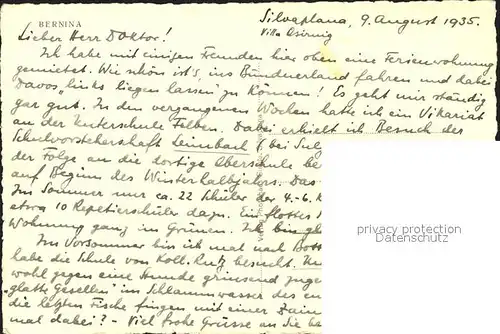 BERNINA
Silvaplana, 9. August 1935.
Villa
Lieber Herr Doktor!
Ich habe mit einigen Freunden hier oben eine Ferienwohnung
gemietet. Wie schön ist's, ins Bündnerland fahren und dabei
Davos „links liegen lassen" zu können! Es geht mir ständig
gar gut. In den vergangenen Wochen hatte ich ein Vikariat
an der Unterschule Felben. Dabei erhielt ich Besuch der
Schulvorsteherschaft Leimbach (bei Sul
der Folge an die dortige Oberschule be
auf Beginn des Winterhalbjahrs. Das
Im Sommer nur ca. 22 Schüler der 4.-6. K
etwa 10 Repetierschüler dazu. Ein flottes
Wohnung ganz im Grünen. Ich bin
Im Vorsommer bin ich mal nach Bott
habe die Schule von Koll. Rutz besucht.
wohl gegen eine Stunde grinsend zuge
„glatte Gesellen" im Schlammwasser des
die letzten Fische fingen mit einer
mal dabei? - Viel frohe Grüsse an Sie
privacy protection
Datenschutz